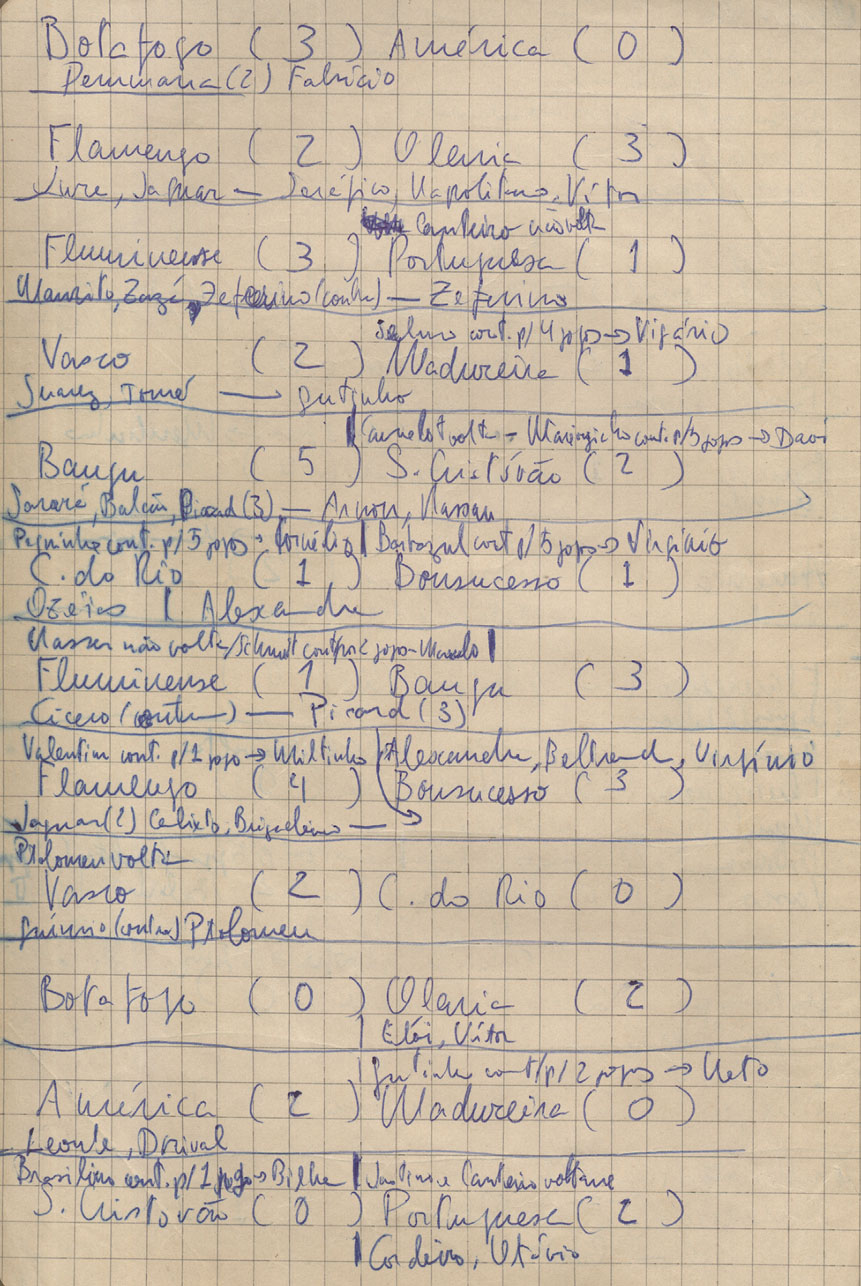 Botafogo ( 3 ) América ( 0 )
(2) Fabrício
Flamengo ( 2 ) Olaria ( 3 )
Jaguar — Seráfico, Napolitano, Vítor
Canteiro não volta
Fluminense ( 3 ) Portuguesa ( 1 )
Zezé, Zeferino (contra) — Zeferino
cont. p/ 4 jogos → Vigário
Vasco ( 2 ) Madureira ( 1 )
Suarez, Tomé — Gutinho
volta - cont. p/5 jogos → Davi
Bangu ( 5 ) S. Cristóvão ( 2 )
Balcão, Picard (3) — Arnon, Nassau
cont. p/ 5 jogos → Cornélio | cont p/ 5 jogos → Virgínio
C. do Rio ( 1 ) Bonsucesso ( 1 )
Ozéias | Alexandre
Nasser não volta / Schmit cont. jogos - Marcelo |
Fluminense ( 1 ) Bangu ( 3 )
Cícero (contra) — Picard (3)
Valentim cont. p/ 1 jogo → Miltinho | Alexandre, Beltrand, Virgínio
Flamengo ( 4 ) Bonsucesso ( 3 )
Jaguar (2) Calixto, Brigadeiro —
Ptolomeu volta
Vasco ( 2 ) C. do Rio ( 0 )
(contra) Ptolomeu
Botafogo ( 0 ) Olaria ( 2 )
| Elói, Vítor
| Gutinho cont/p/ 2 jogos → Neto
América ( 2 ) Madureira ( 0 )
Leonte, Dorival
Brasilino cont. p/ 1 jogo → Bilha | Justino e Canteiro voltam
S. Cristovão ( 0 ) Portuguesa ( 2 )
| Cordeiro, Otávio